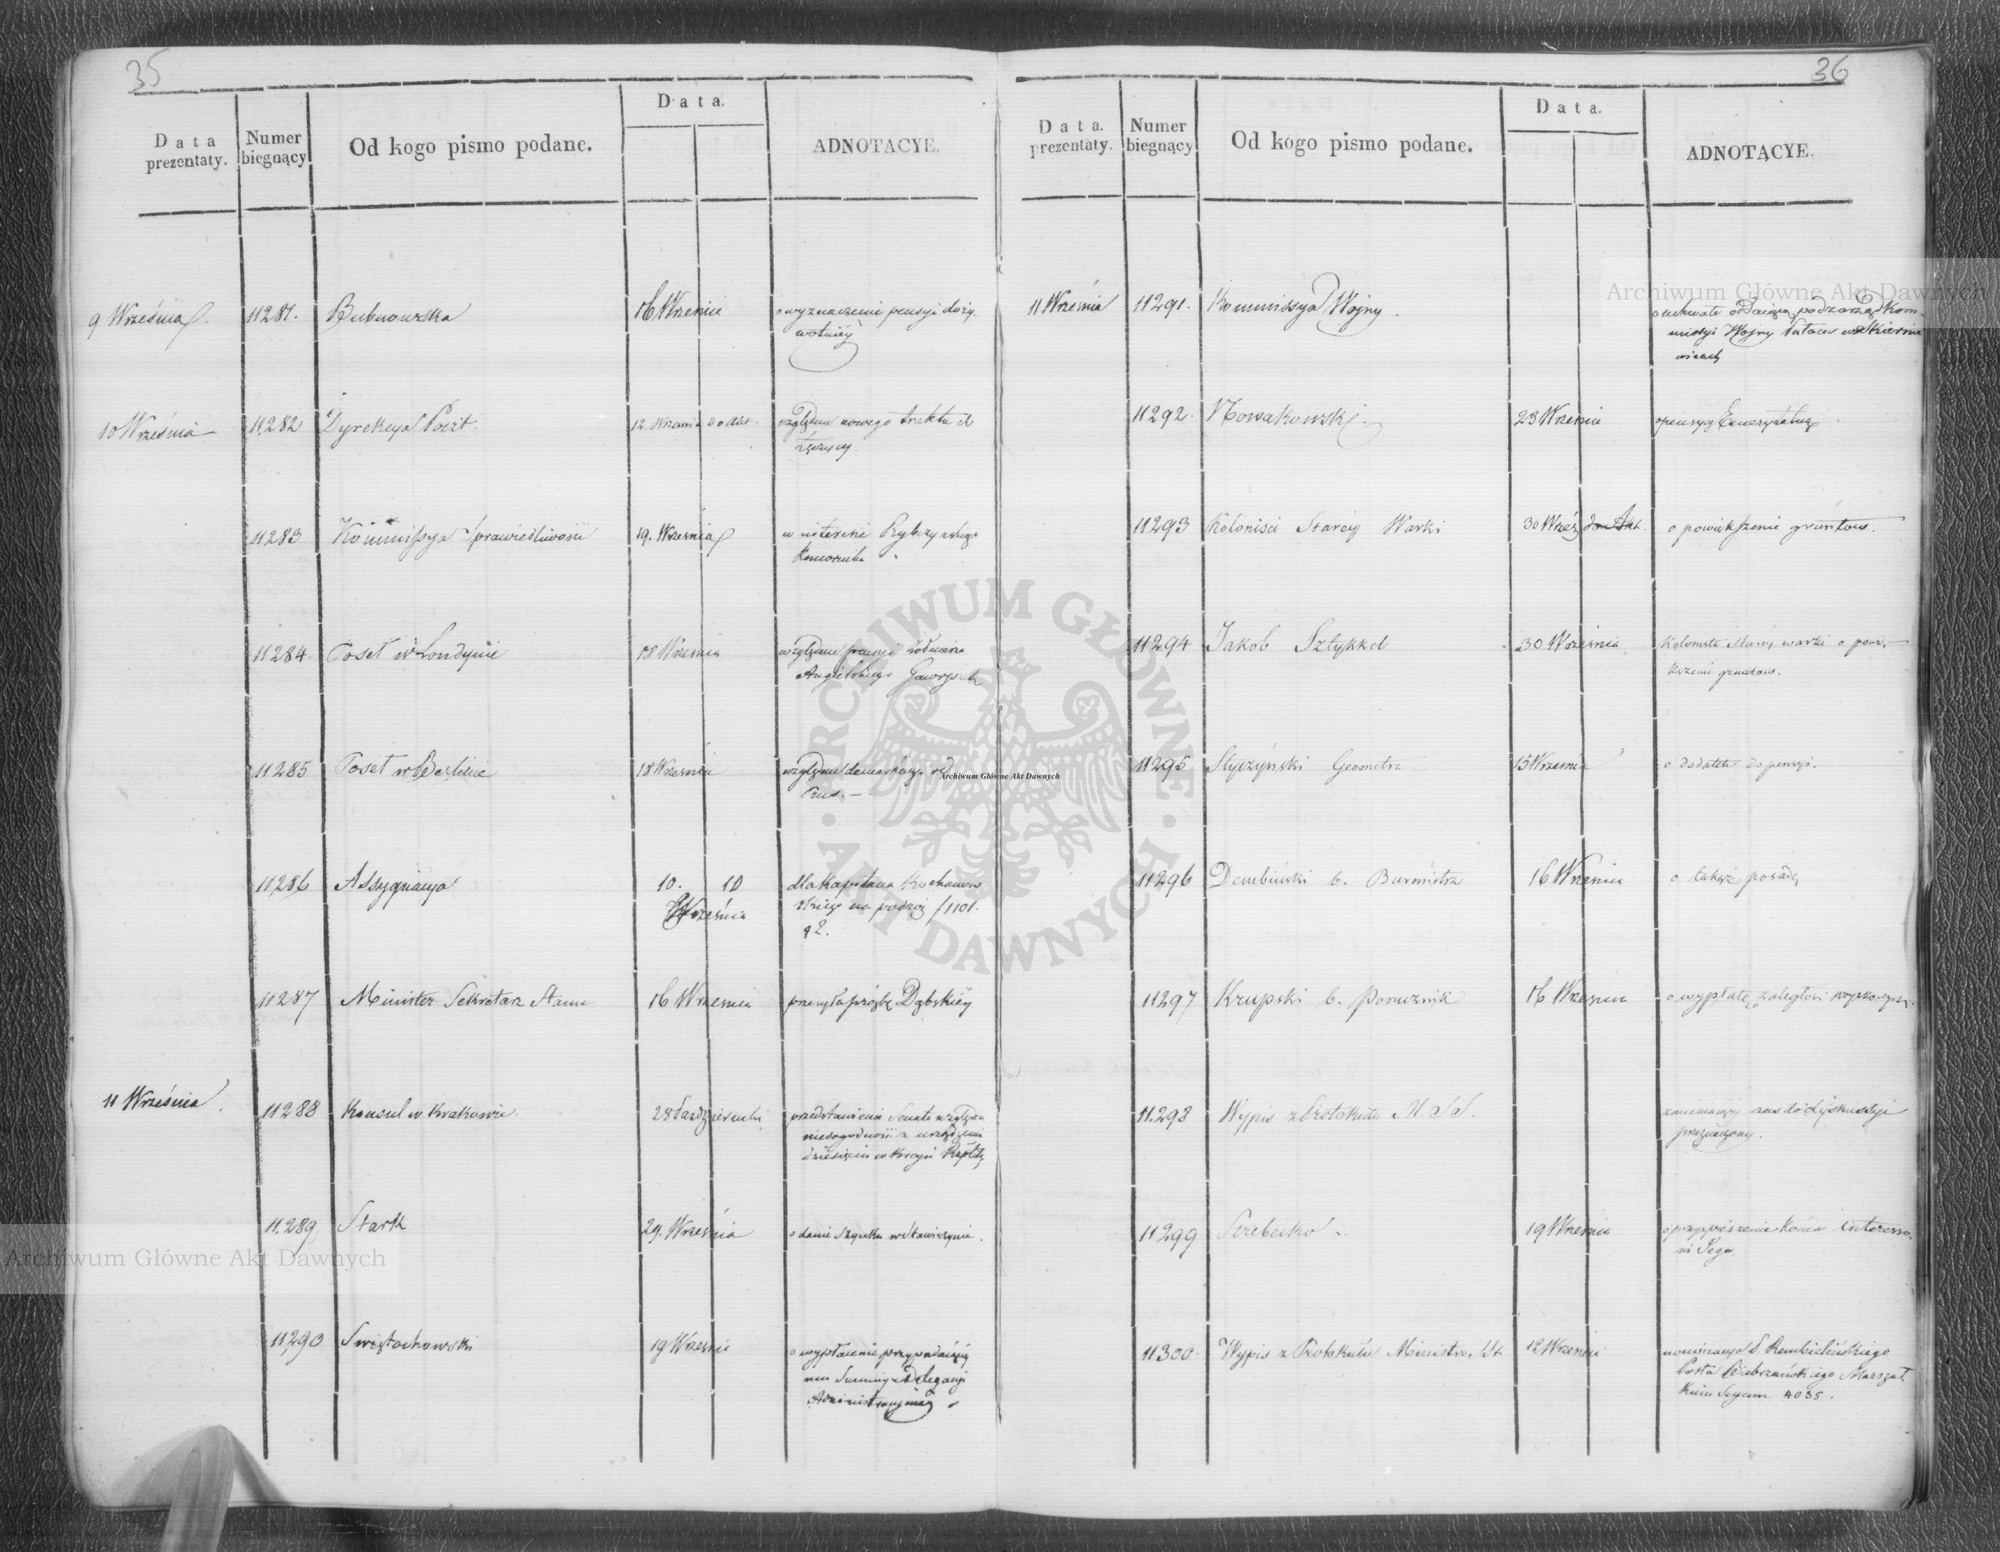 35
Data prezentaty.
Numer biegnący
Od kogo pismo podane.
Data.
ADNOTACYE.
9 Września
11281.
Bubnowska
16 Wrześnie
o wyznaczenie pensyi doży
wotniéy
10 Września
11282
Dyrekcya Poczt
12. Września do Akt.
względem nowego traktu d
Łęczycy.
11283
Kommissya Sprawiedliwości
19. Września
w interesie
Komornika
11284
Poseł w Londynie
18 Września
względem pensyi żołnierza
Angielskiego
11285
Poseł w Berlinie
18 Września
względem demarkacyi od
Prus. —
11286
Assygnacya
10. 10
Września
dla Kapitana Kochanow
skiego na podróż f 1101.
q 2.
11287
Minister Sekretarz Stanu
16 Września
przesyła prośbę Dąbskiéy
11 Września
11288
Konsul w Krakowie
28 Październik
przedstawienie Senatu względem
niedogodności z urządzenia
dziesięcin w Kraju
11.289
Stark
29. Września
o danie
11290
Swiętochowski
19 Wrześnie
o wypłacenie przypadaiącéy
mu Summy z Delegacyi
Administracyinéy
36
Data. prezentaty.
Numer biegnący
Od kogo pismo podane.
Data.
ADNOTACYE.
11 Września
11291.
Kommissya Woyny.
o uchwale oddaiącą pod zarząd Kom-
missyi Woyny Pałacu w Skiernie
wicach
11292.
Nowakowski.
23 Wrześnie
o pensyą Emerytalną
11293
Koloniści Staréy Warki
30 Wrześ. do Akt.
o powiększenie gruntow.
11294
Jakob Sztykkel
30 Września
Kolonista Staréy Warki o powi-
kszenie gruntow.
11295
Styczyński Geometra
15 Września
o dodatek do pensyi.
11296
Dembinski b. Burmistrz
16 Września
o takąż posadę
11297
Krupski b. Porucznik
16 Września
o wypłatę zaległości
11.298
Wypis z Protokułu M S S.
zas do dyskussyi
przeznaczony.
11299
19 Września
o przyspieszenie końca interesso-
wi Jego
11300.
Wypis z Protokułu Ministra. Wt
12 Wrześnie
nominacya S. Rembielińskiego
Posła Biebrzańskiego Marszał
kiem Seymu 4035.
Archiwum Główne Akt Dawnych
ARCHIWUM GŁÓWNE
Archiwum Główne Akt Dawnych
· AKT DAWNYCH ·
Archiwum Główne Akt Dawnych